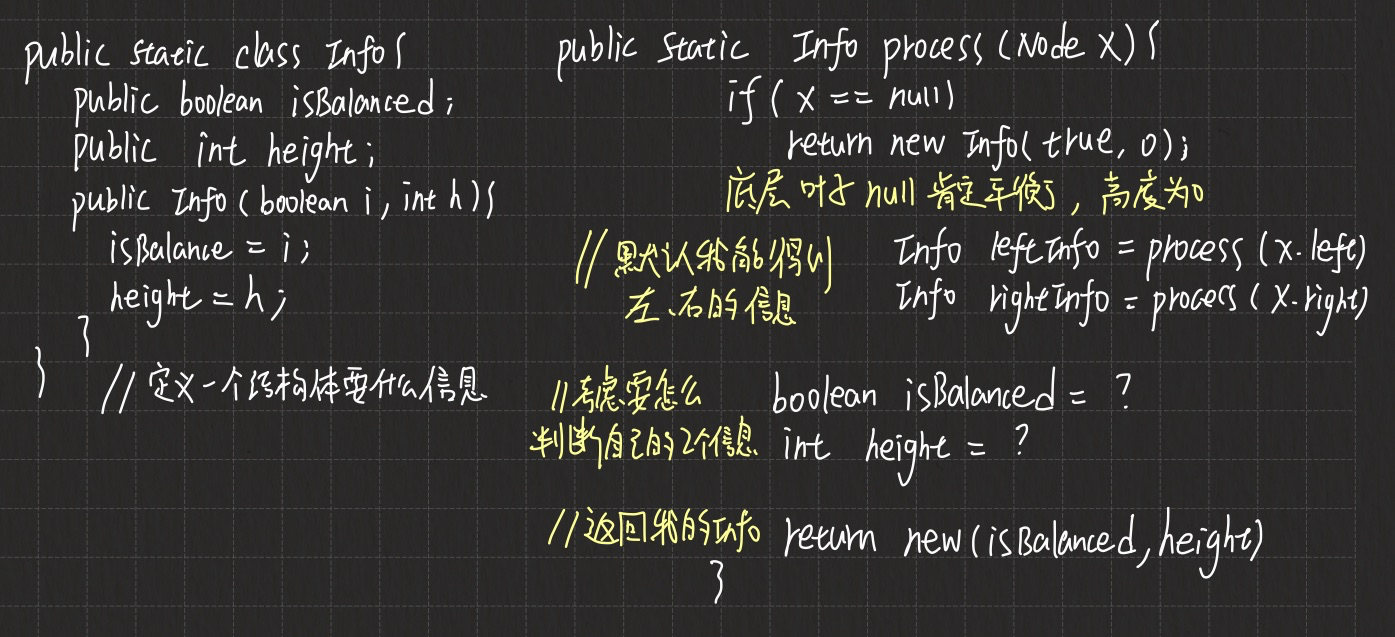 public static class Info{
public boolean isBalanced;
public int height;
public Info(boolean i, int h){
isBalance = i;
height = h;
}
}
// 定义一个结构体要什么信息
public static Info process(Node X){
if(x == null)
return new Info(true, 0);
底层叶子null肯定平衡了，高度为0
// 默认我能得到
左、右的信息
Info leftInfo = process(x.left)
Info rightInfo = process(x.right)
// 考虑要怎么
判断自己的2个信息
boolean isBalanced = ?
int height = ?
// 返回我的Info
return new(isBalanced, height)
}